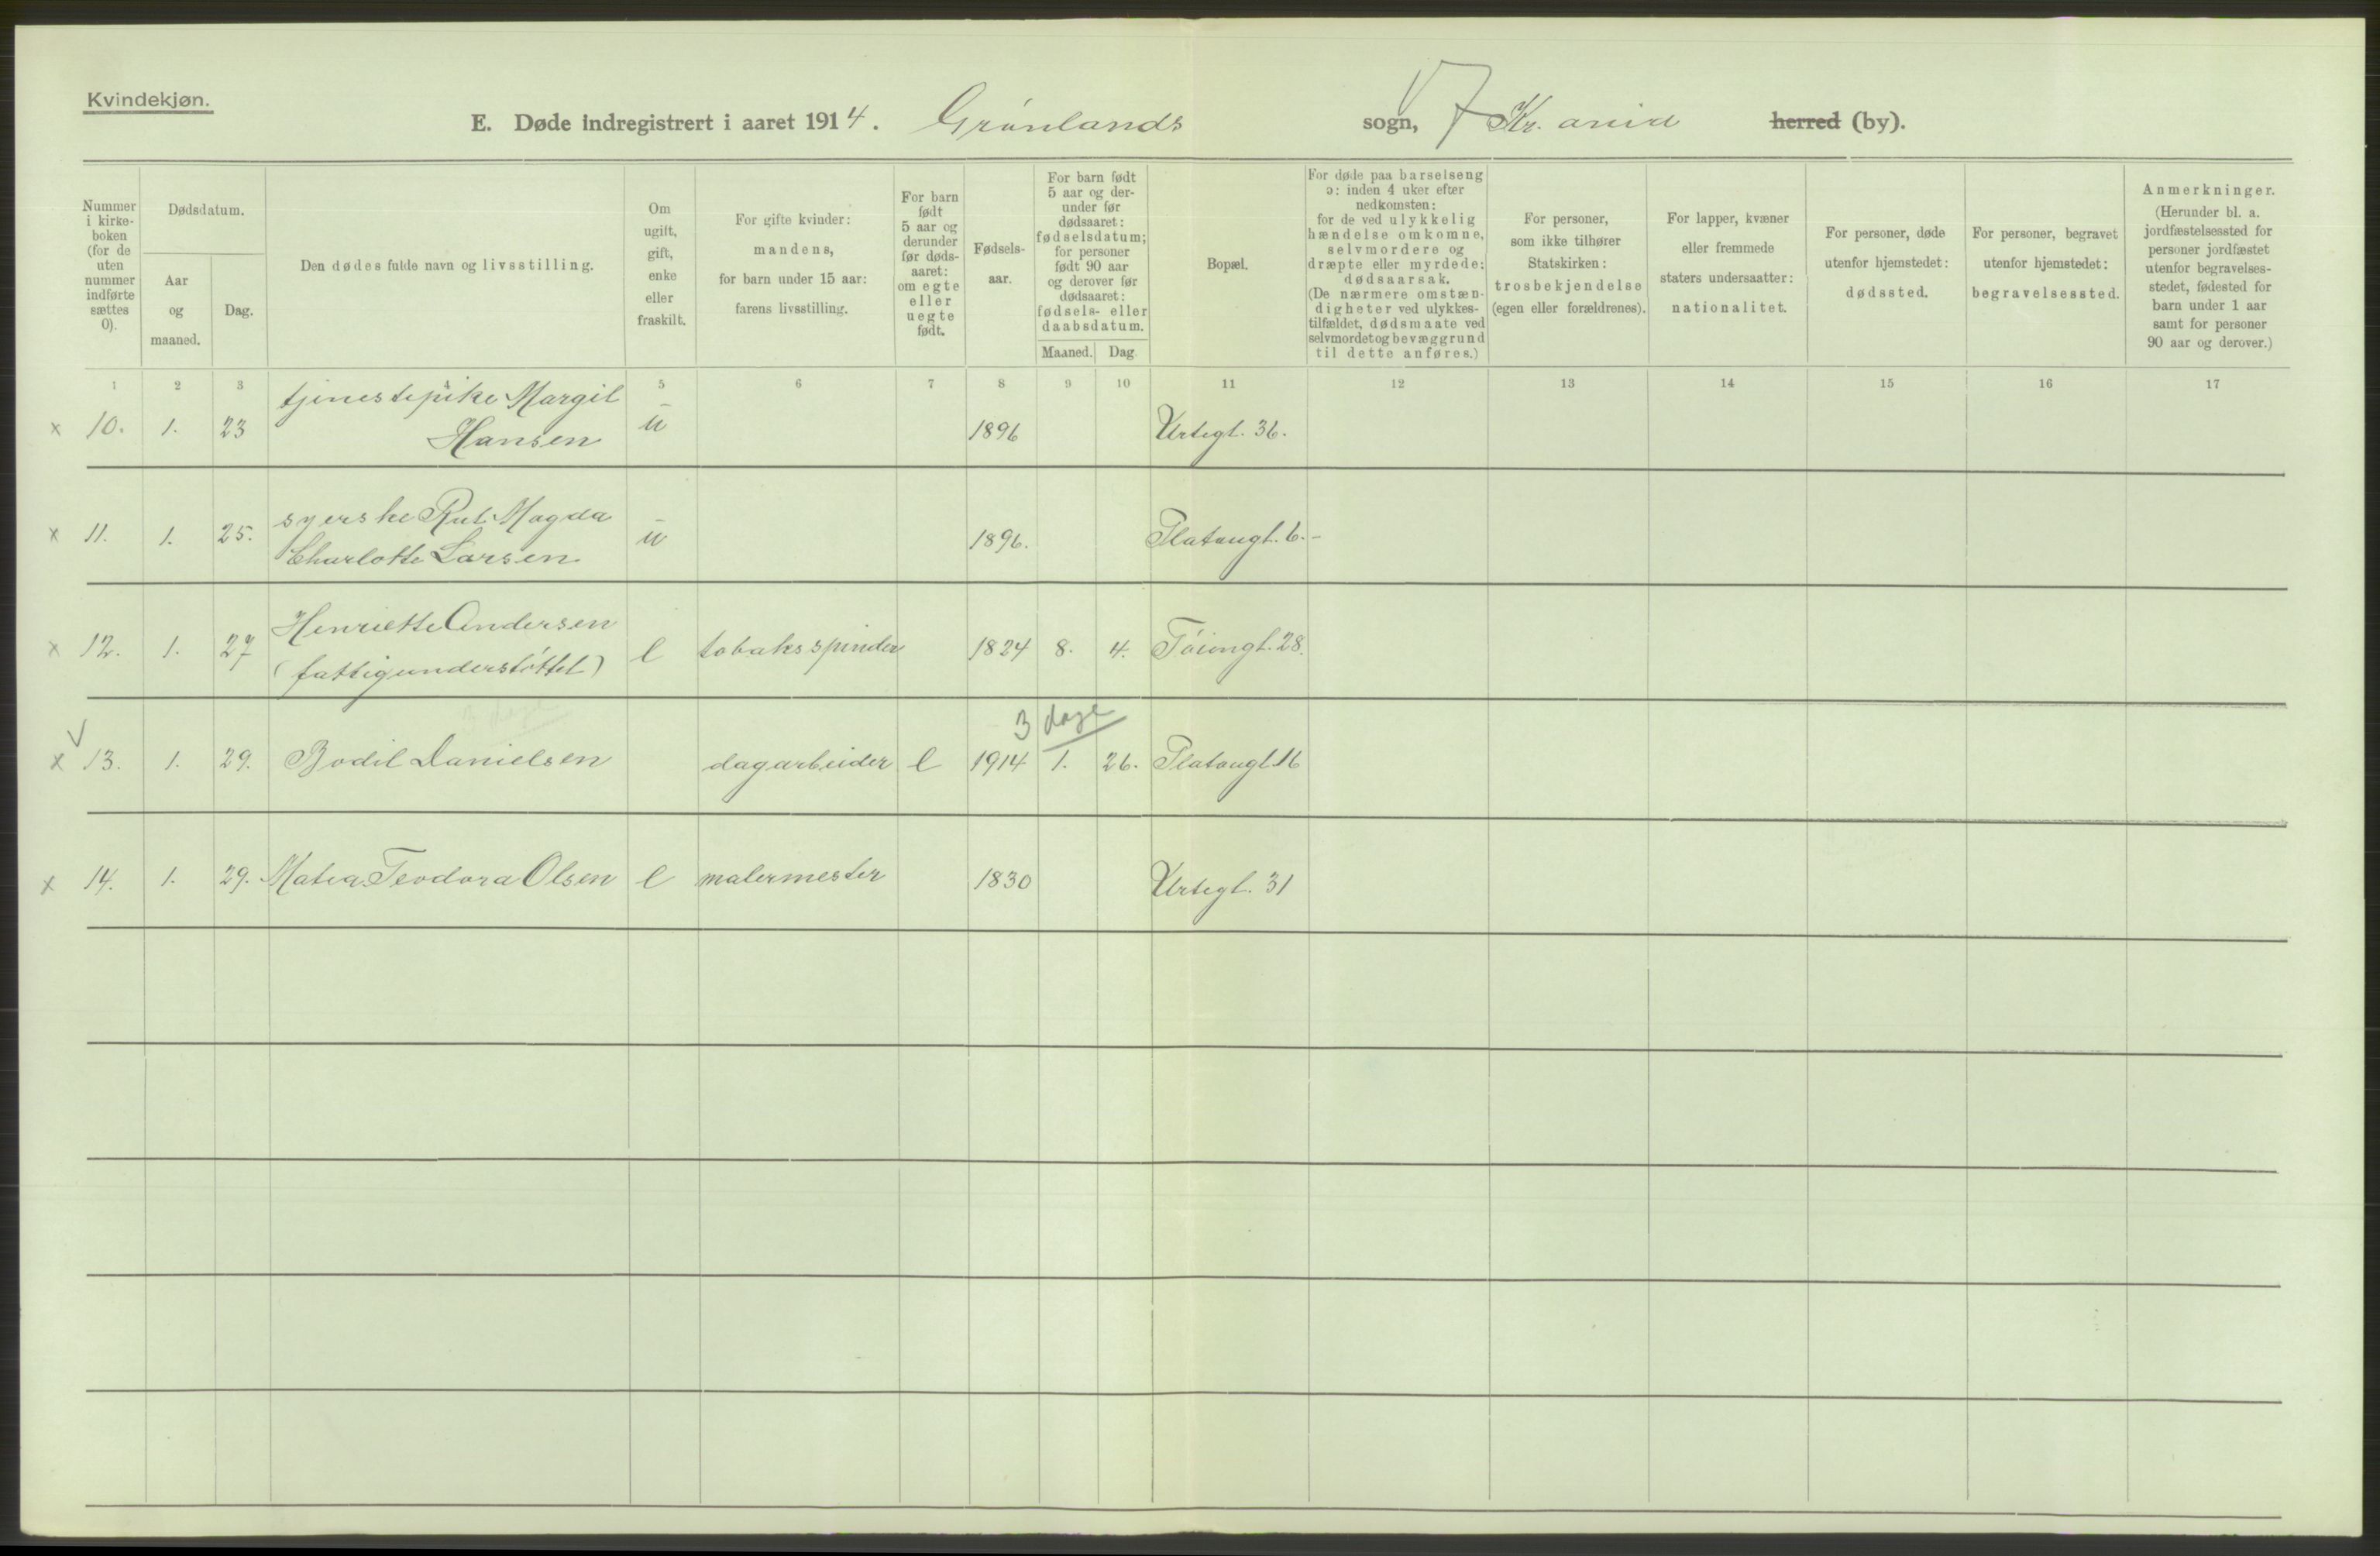 Kvindekjøn.
E. Døde indregistrert i aaret 1914. Grønlands sogn, Kr.ania herred (by).
Nummer i kirkeboken (for de uten nummer indførte sættes 0).
Dødsdatum.
Aar og maaned.
Dag.
Den dødes fulde navn og livsstilling.
Om ugift, gift, enke eller fraskilt.
For gifte kvinder: mandens, for barn under 15 aar: farens livsstilling.
For barn født 5 aar og derunder før dødsaaret: om egte eller uegte født.
Fødselsaar.
For barn født 5 aar og derunder før dødsaaret: fødselsdatum; for personer født 90 aar og derover før dødsaaret: fødsels- eller daabsdatum.
Maaned. Dag
Bopæl.
For døde paa barselseng ɔ: inden 4 uker efter nedkomsten; for de ved ulykkelig hændelse omkomne, selvmordere og dræpte eller myrdede: dødsaarsak. (De nærmere omstændigheter ved ulykkestilfældet, dødsmaate ved selvmordet og bevæggrund til dette anføres.)
For personer, som ikke tilhører Statskirken: trosbekjendelse (egen eller forældrenes).
For lapper, kvæner eller fremmede staters undersaatter: nationalitet.
For personer, døde utenfor hjemstedet: dødssted.
For personer, begravet utenfor hjemstedet: begravelsessted.
Anmerkninger. (Herunder bl. a. jordfæstelsessted for personer jordfæstet utenfor begravelsesstedet, fødested for barn under 1 aar samt for personer 90 aar og derover.)
1 2 3 4 5 6 7 8 9 10 11 12 13 14 15 16 17
tjenestepike Margit
x 10. 1. 23 Hansen u 1896 Urtegt. 36.
syerske Rut Magda
x 11. 1. 25. Charlotte Larsen u 1896. Platougt. 6.-
Henriette Andersen
x 12. 1. 27 (fattigunderstøttet) e tobaksspinder 1824 8. 4. Tøiengt. 28.
3 dage
x 13. 1. 29. Bodil Danielsen dagarbeider e 1914 1. 26. Platougt. 16
x 14. 1. 29. Matea Teodora Olsen e malermester 1830 Urtegt. 31